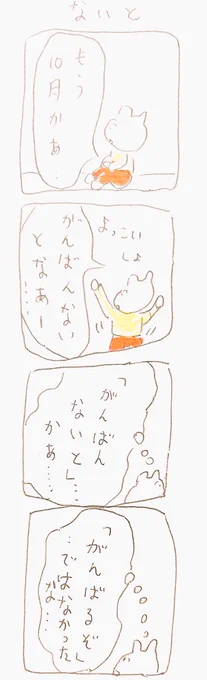 ないと
もう
10月かあ…
よっこい
しょ
がんばんない
となあー
……
「がんばん
ないと」…
かあ……
「がんばるぞ」
…ではなかった
な…